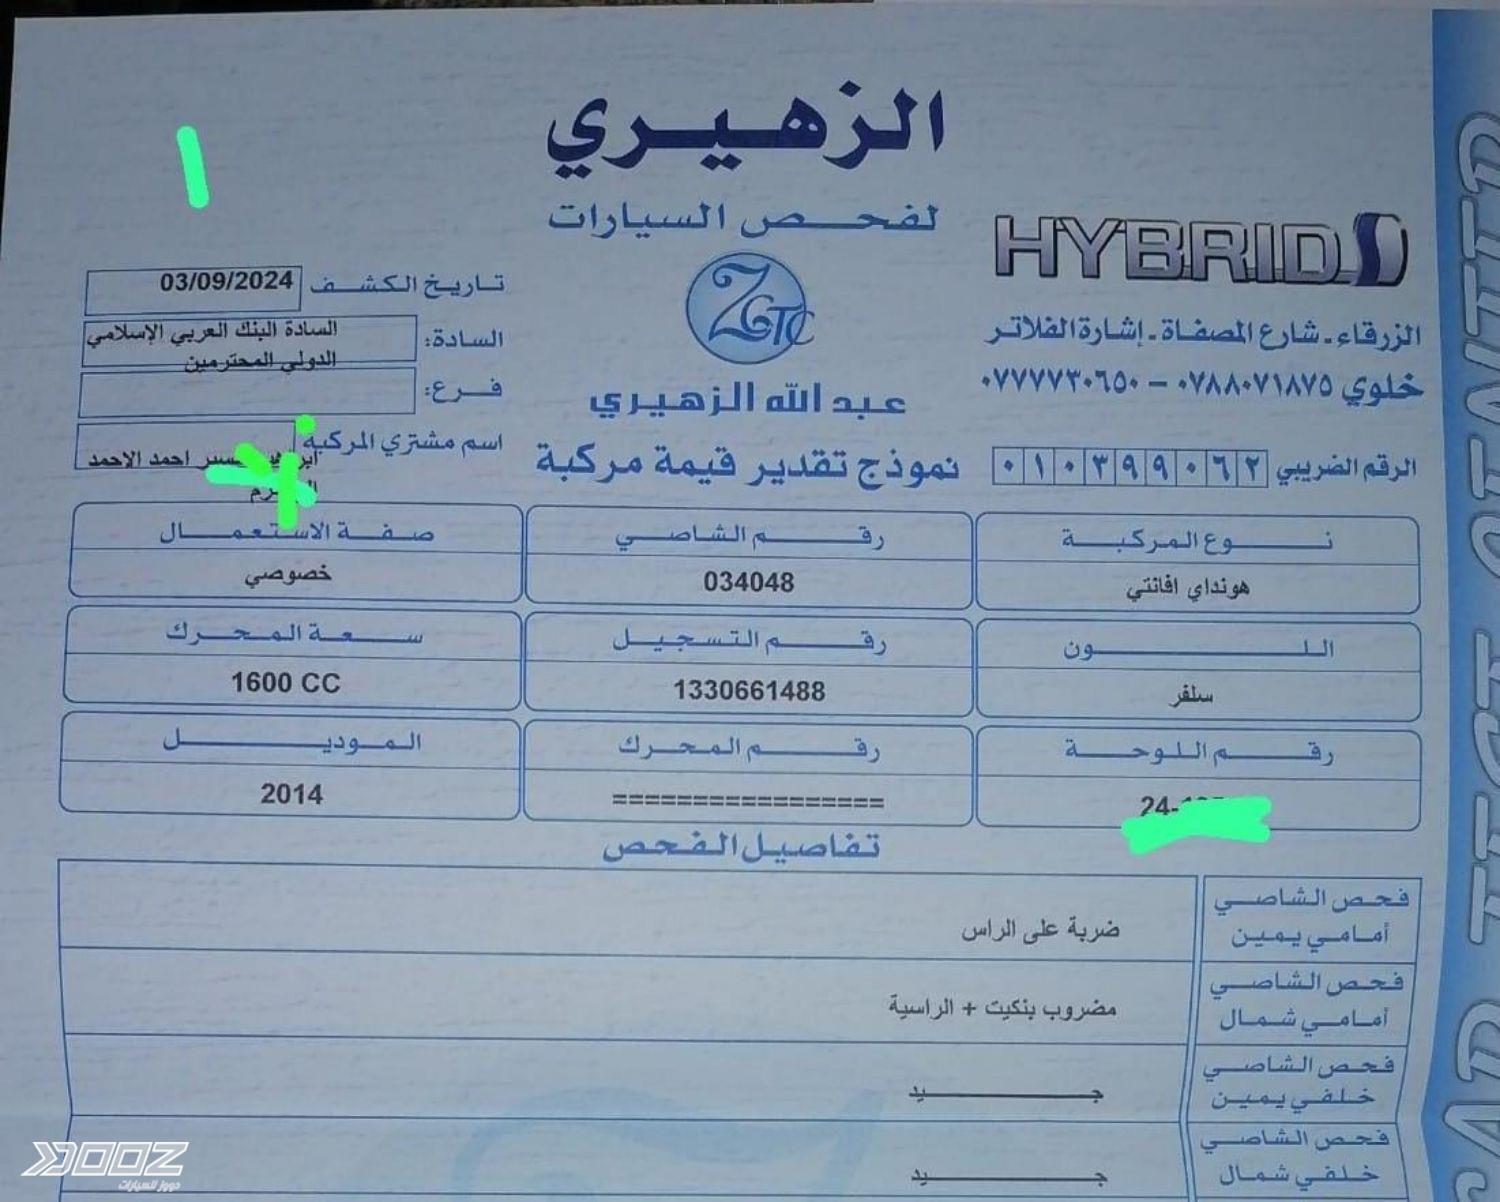 الزهيري
لفحص السيارات
HYBRID
ZGTC
عبد الله الزهيري
الزرقاء - شارع المصفاة - إشارة الفلاتر
خلوي ٠٧٨٨٠٧١٨٧٥ – ٠٧٧٧٧٣٠٦٥٠
الرقم الضريبي ٠١٠٣٩٩٠٦٢
نموذج تقدير قيمة مركبة
تاريخ الكشف 03/09/2024
السادة: السادة البنك العربي الإسلامي
الدولي المحترمين
فرع:
اسم مشتري المركبة احمد الاحمد
نوع المركبة
هونداي افانتي
رقم الشاصي
034048
صفة الاستعمال
خصوصي
اللون
سلفر
رقم التسجيل
1330661488
سعة المحرك
1600 CC
رقم اللوحة
24-
رقم المحرك
=================
الموديل
2014
تفاصيل الفحص
فحص الشاصي
أمامي يمين
ضربة على الراس
فحص الشاصي
أمامي شمال
مضروب بنكيت + الراسية
فحص الشاصي
خلفي يمين
جيد
فحص الشاصي
خلفي شمال
جيد
CAR TEST CENTER
DOOZ
دووز للسيارات